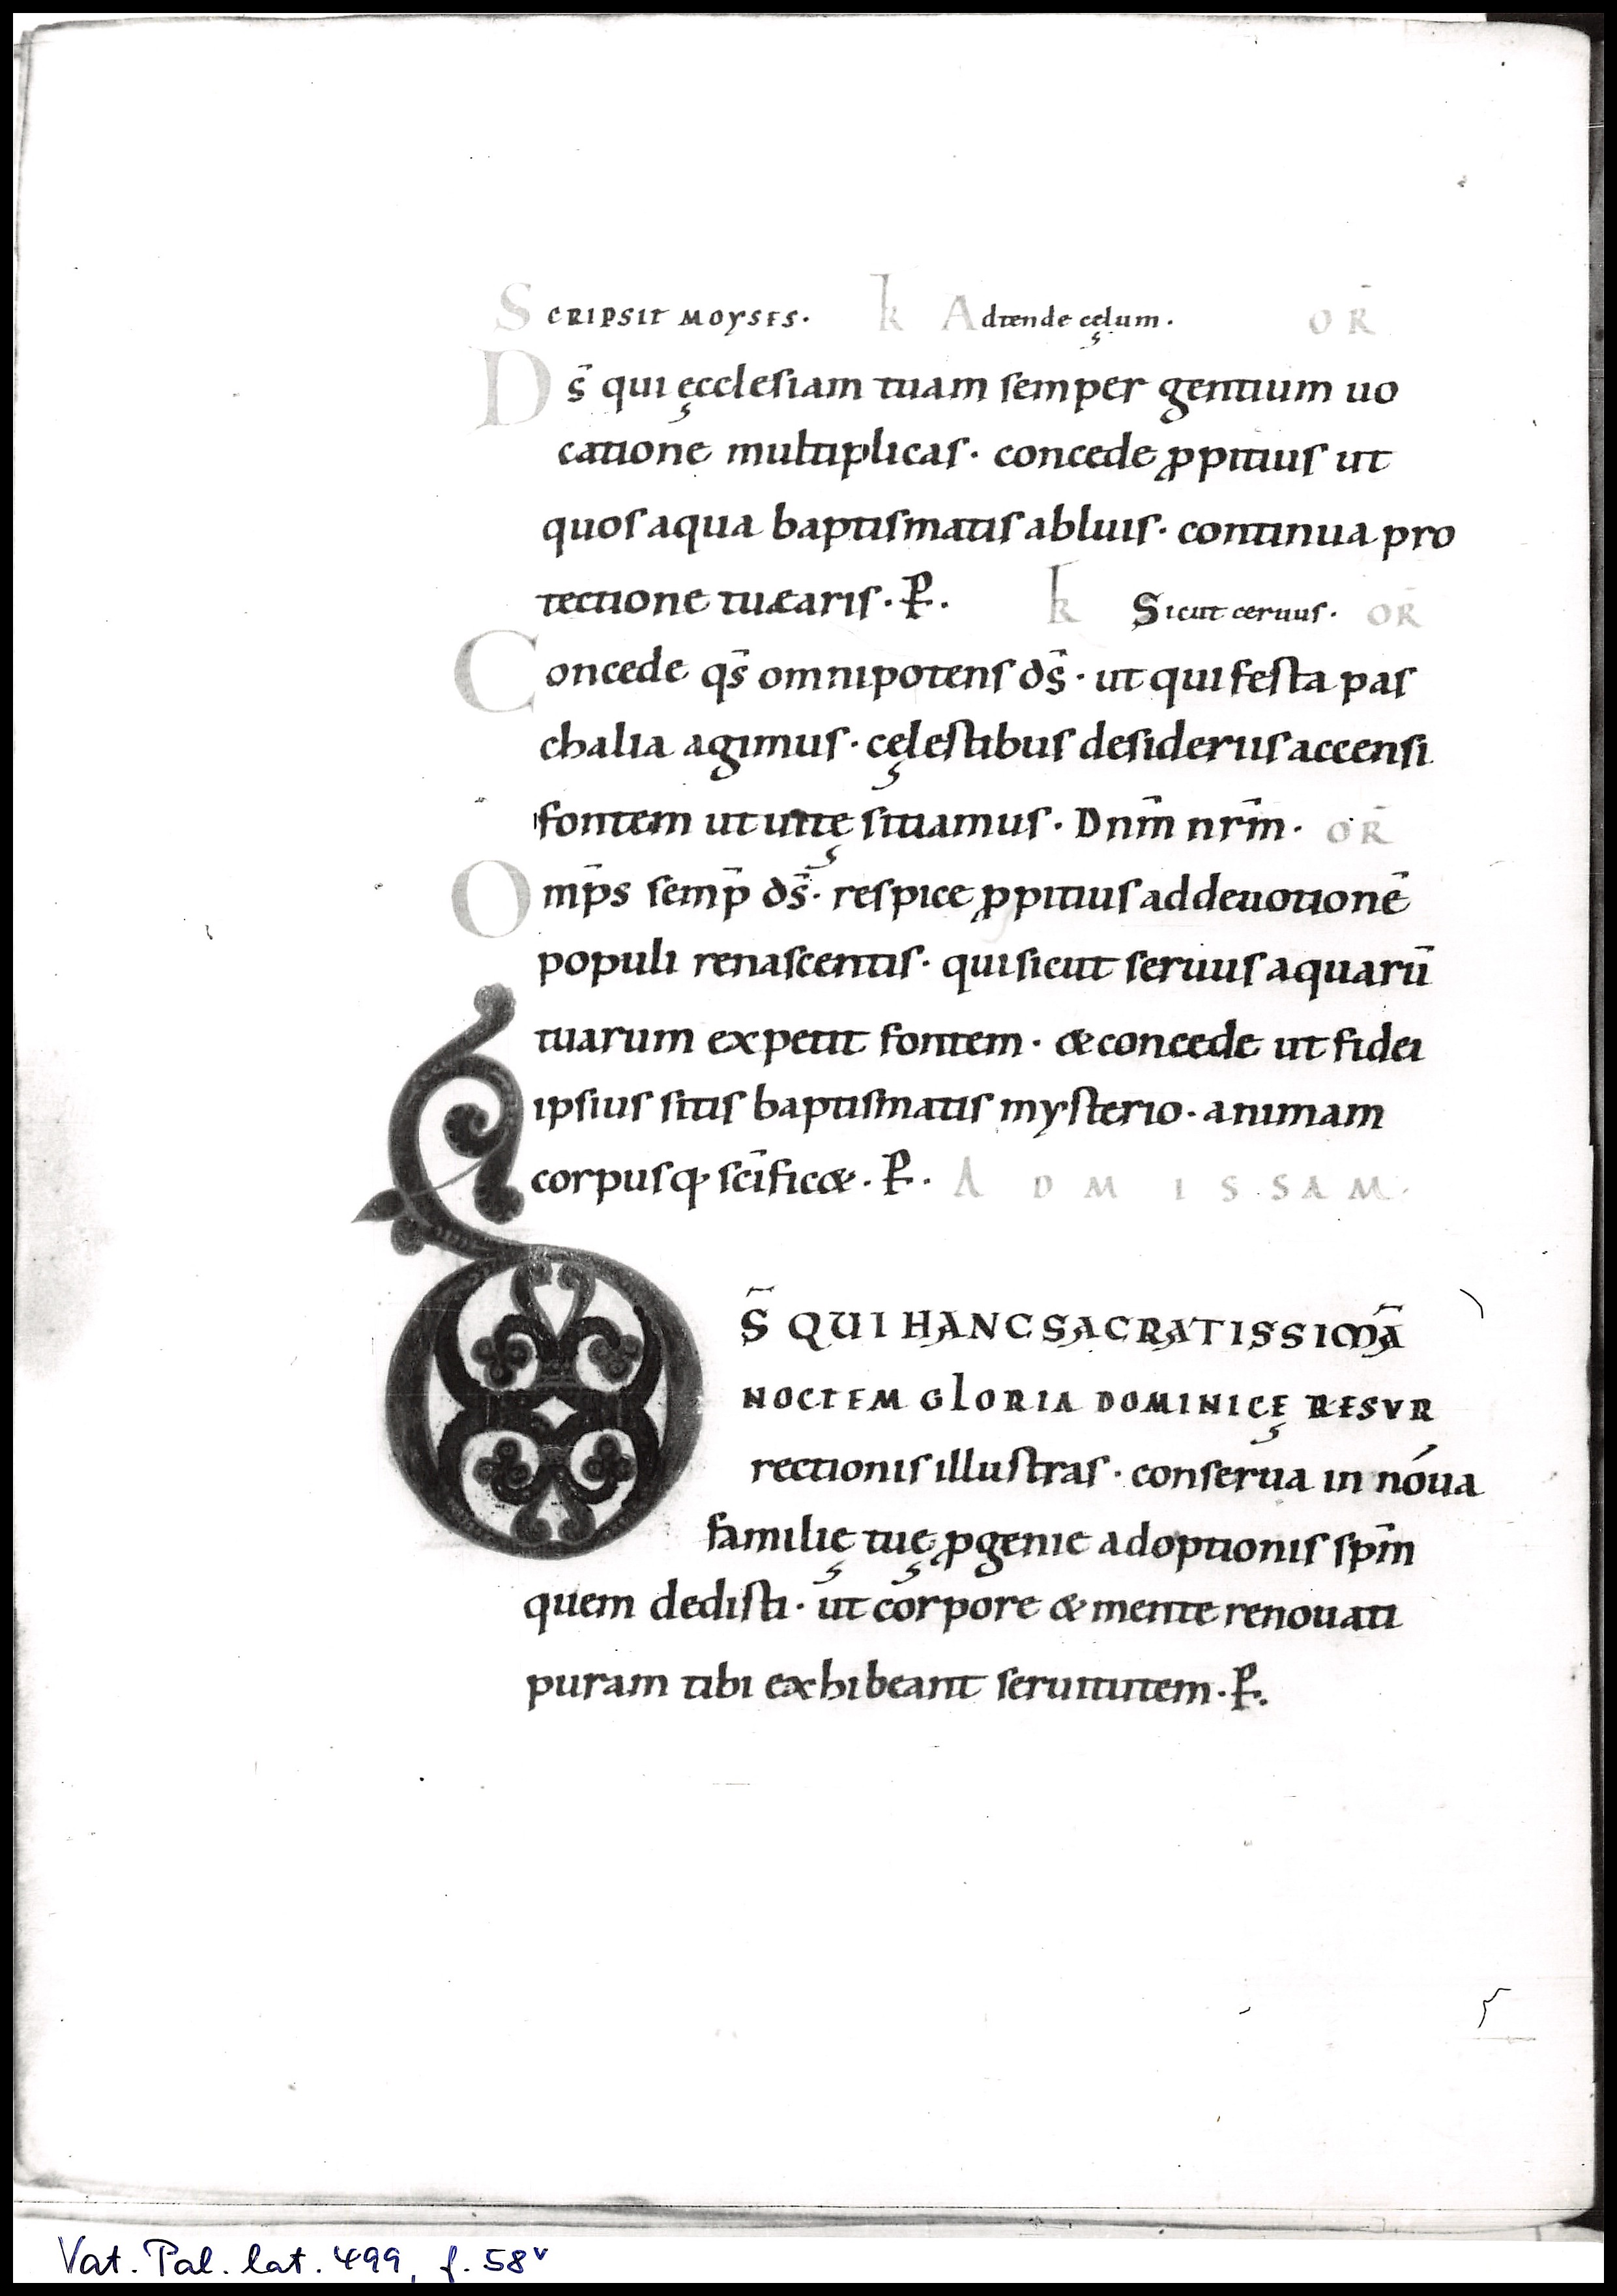 SCRIPSIT MOYSES· k Adtende cęlum· OR̄
Ds̄ qui ęcclesiam tuam semper gentium uo
catione multiplicas· concede ꝓpitius ut
quos aqua baptismatis abluis· continua pro
tectione tuearis· P̶· k Sicut ceruus· OR̄
Concede qs̄ omnipotens ds̄· ut qui festa pas
chalia agimus· cęlestibus desideriis accensi
fontem ut uitę sitiamus· Dnm̄ nrm̄· OR̄
Omp̄s semp̄ ds̄· respice ꝓpitius ad deuotionē
populi renascentis· qui sicut seruus aquarū
tuarum expetit fontem· & concede ut fidei
ipsius sitis baptismatis mysterio· animam
corpusq· scīfic&· P̶· AD MISSAM·
DS̄ QUI HANC SACRATISSIMĀ
NOCTEM GLORIA DOMINICĘ RESVR
rectionis illustras· conserua in nóua
familię tuę ꝓgenie adoptionis spm̄
quem dedisti· ut corpore & mente renouati
puram tibi exhibeant seruitutem· P̶.
Vat. Pal. lat. 499, f. 58v